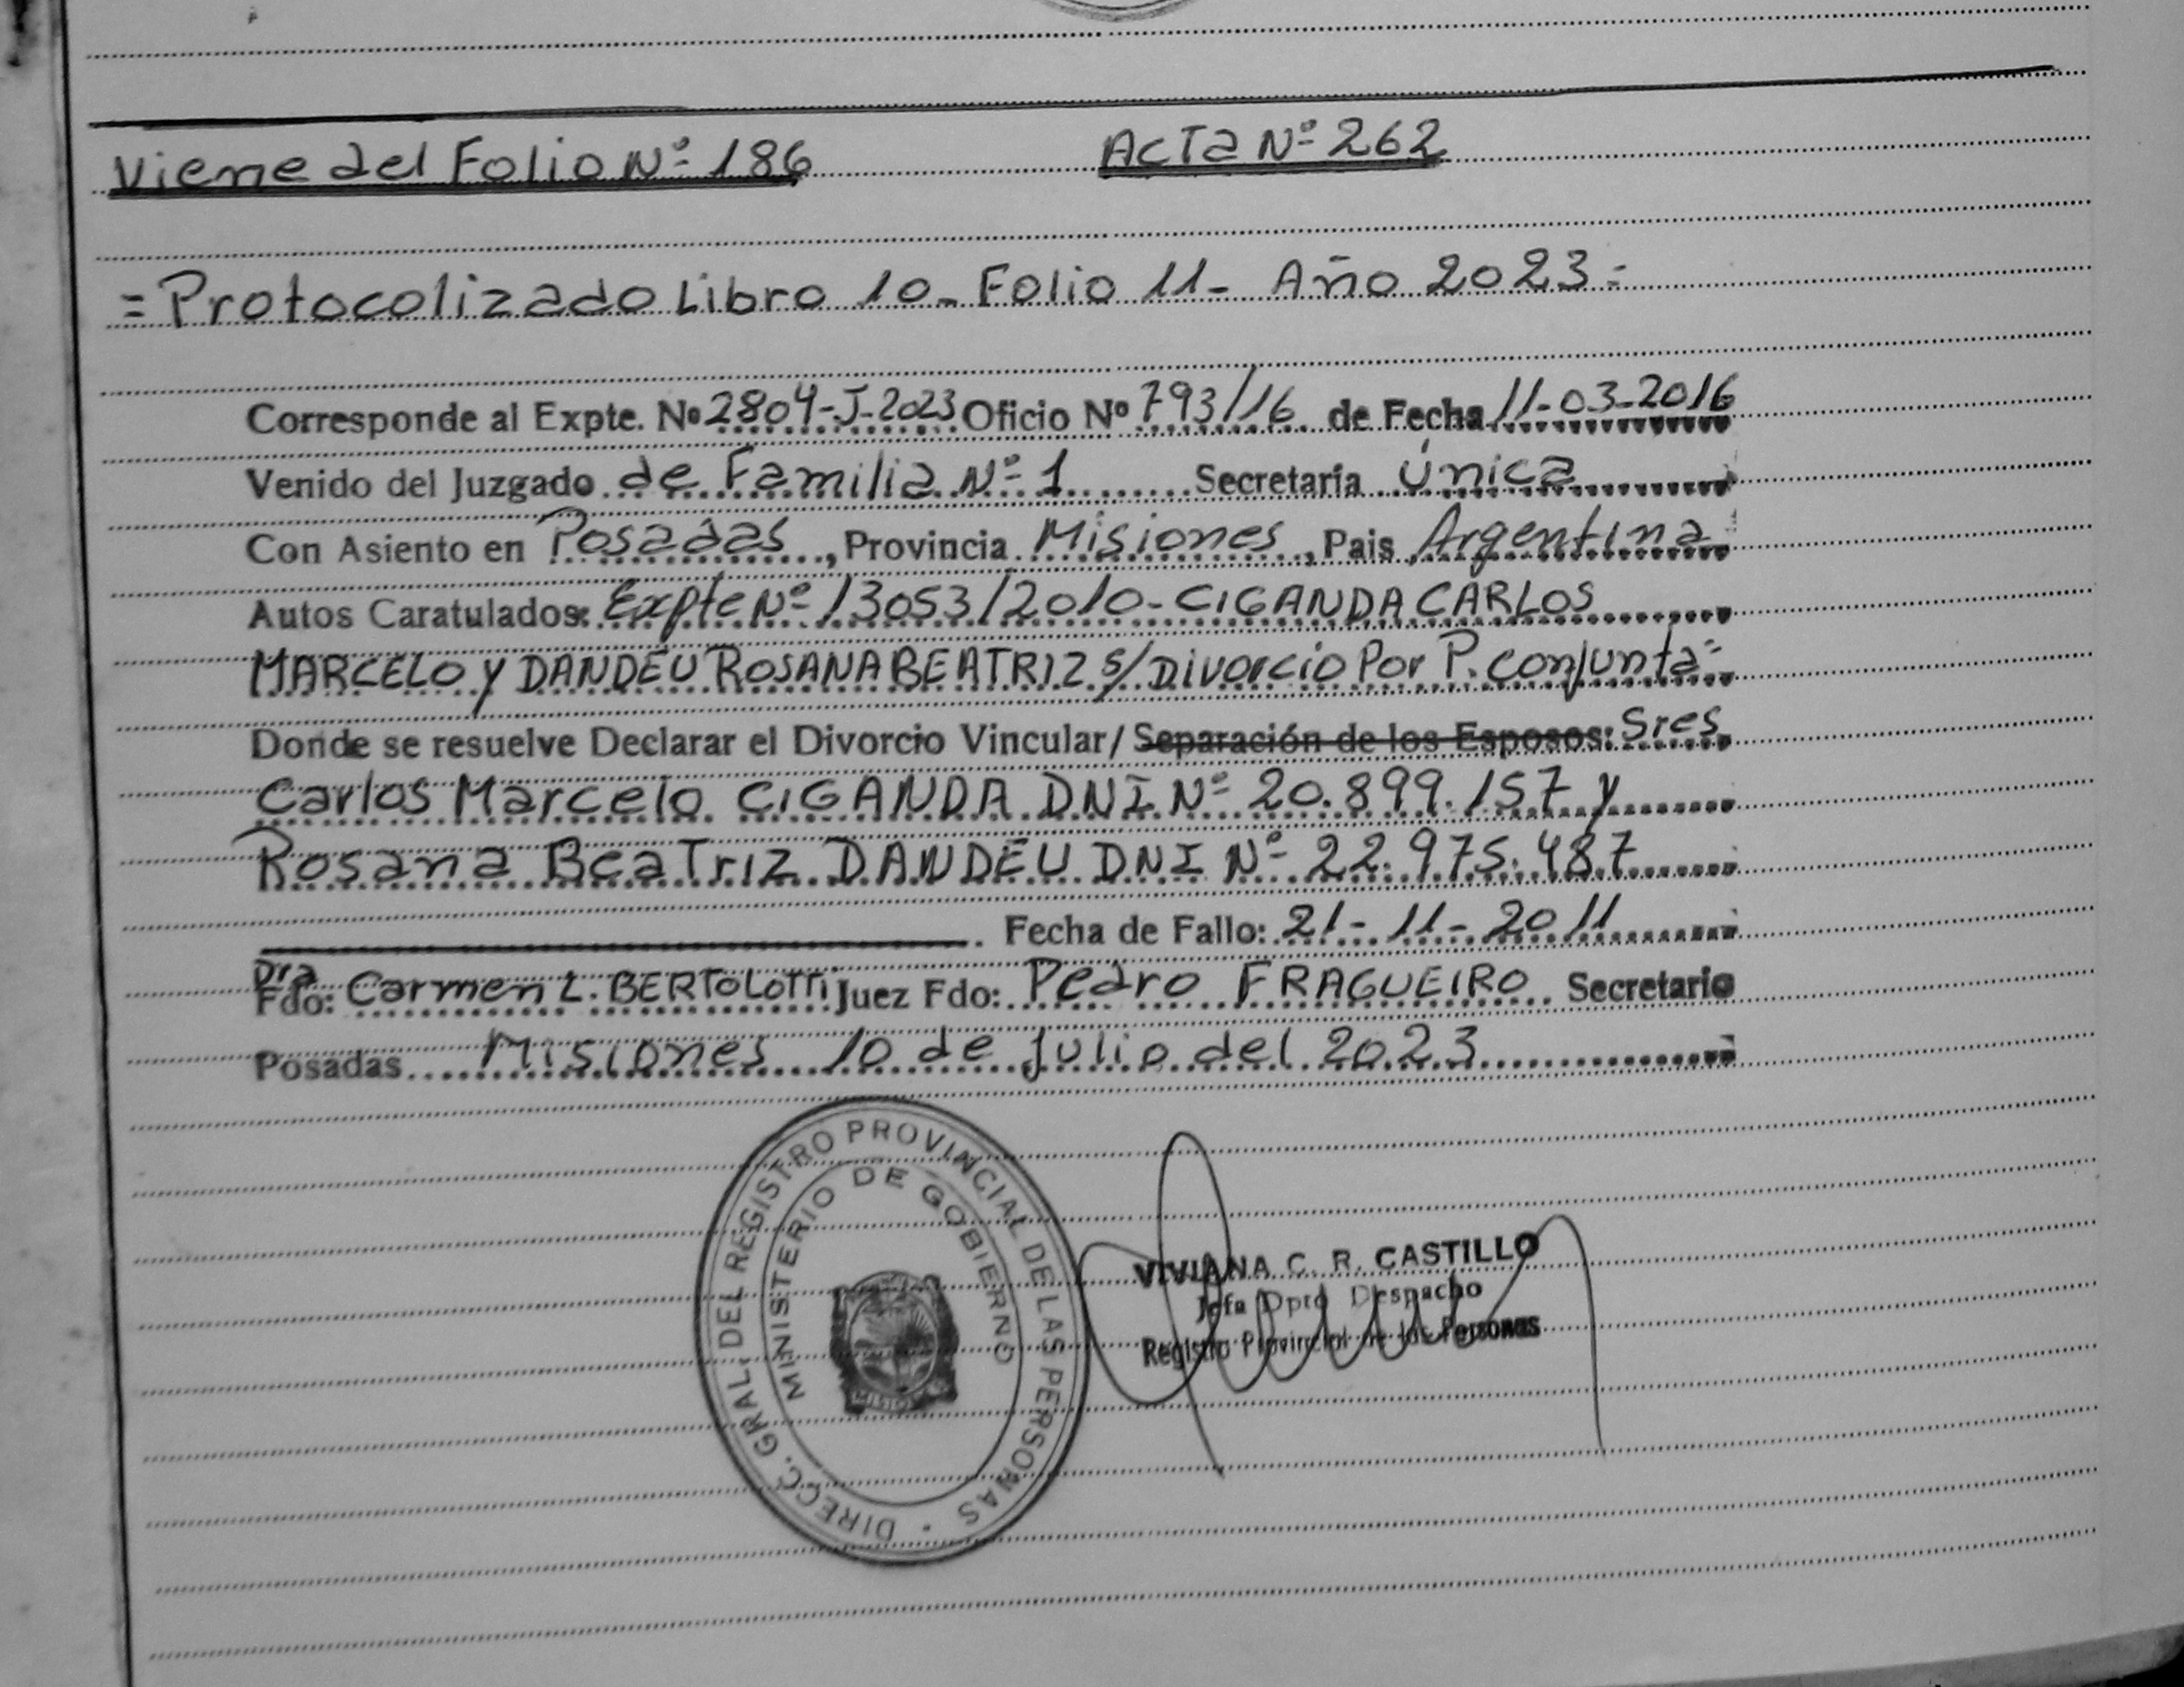 Viene del Folio Nº 186 Acta Nº 262
= Protocolizado Libro 10 - Folio 11 - Año 2023 =
Corresponde al Expte. Nº 2804-J-2023 Oficio Nº 793/16 de Fecha 11-03-2016
Venido del Juzgado de Familia Nº 1 Secretaría Única
Con Asiento en Posadas, Provincia Misiones, Pais Argentina
Autos Caratulados: Expte Nº 13053/2010 - CIGANDA CARLOS
MARCELO Y DANDEU ROSANA BEATRIZ s/ Divorcio Por P. Conjunta"
Donde se resuelve Declarar el Divorcio Vincular/ Separación de los Esposos: Sres
Carlos Marcelo CIGANDA DNI Nº 20.899.157 y
Rosana Beatriz DANDEU DNI Nº 22.975.487
Fecha de Fallo: 21-11-2011
Dra
Fdo: Carmen L. BERTOLOTTI Juez Fdo: Pedro FRAGUEIRO Secretario
Posadas Misiones 10 de Julio del 2023
DIRECC. GRAL. DEL REGISTRO PROVINCIAL DE LAS PERSONAS
MINISTERIO DE GOBIERNO
VIVIANA C. R. CASTILLO
Jefa Dpto Despacho
Registro Provincial de las Personas